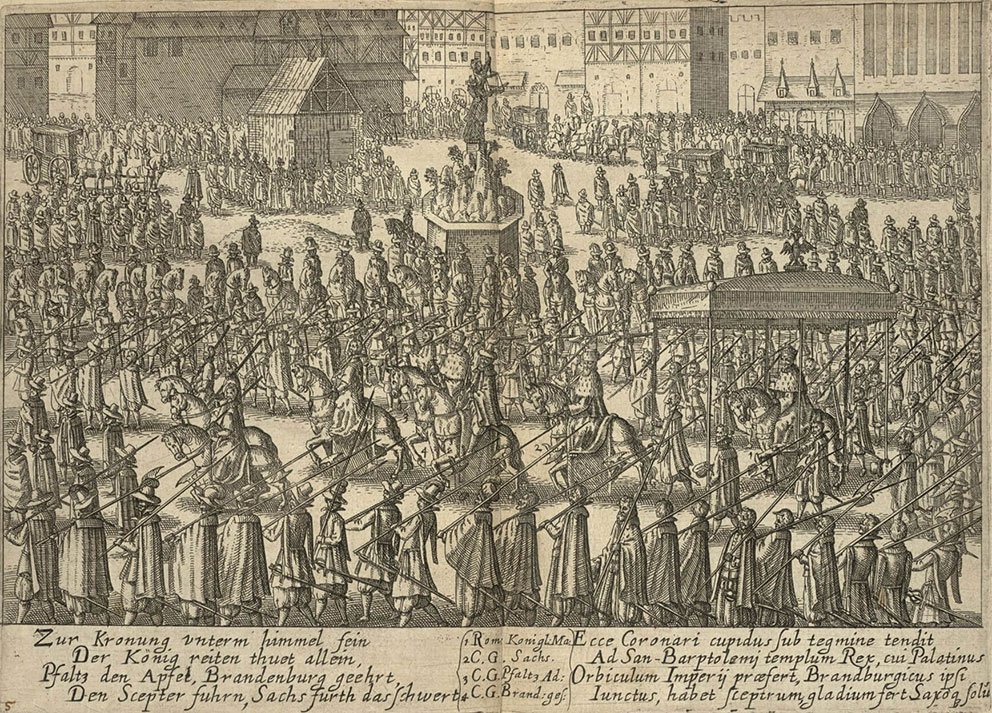 Zur Kronung vnterm himmel fein
Der König reiten thuet allein,
Pfaltz den Apfel, Brandenburg geehrt,
Den Scepter fuhrn, Sachs furth das schwert
1. Rom Konigl. Ma
2 C. G. Sachs.
3 C. G. Pfaltz Ad:
4 C. G. Brand: ges:
Ecce Coronari cupidus sub tegmine tendit
Ad San-Barptolemj templum Rex, cui Palatinus
Orbiculum Imperij præfert, Brandburgicus ipsi
Iunctus, habet sceptrum, gladium fert Saxoq solu
5
4
2